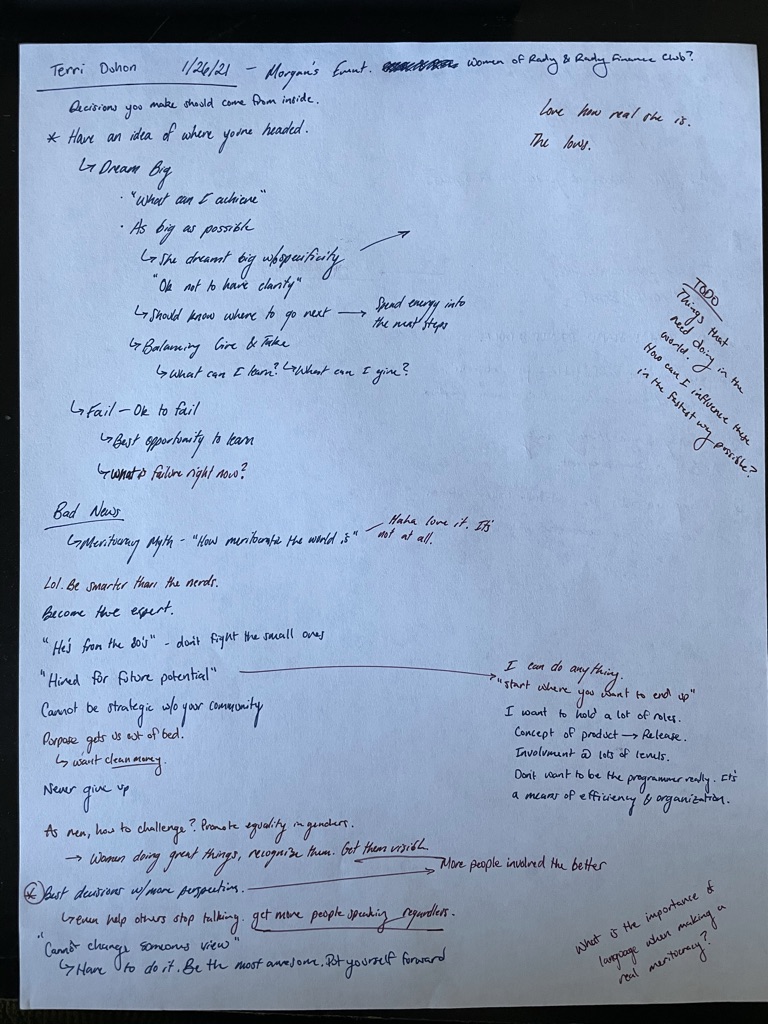 Terri Duhon 1/26/21 - Morgan's Event. Women of Rady & Rady Finance Club?
Decisions you make should come from inside.
* Have an idea of where you're headed.
↳ Dream Big
· "What can I achieve"
· As big as possible
↳ She dreamt big w/o specificity
"Ok not to have clarity"
↳ Should know where to go next → Spend energy into
the next steps
↳ Balancing Give & Take
↳ What can I learn? ↳ What can I give?
↳ Fail - Ok to fail
↳ Best opportunity to learn
↳ What is failure right now?
Love how real she is.
The lows.
TODO
Things that
need doing in the
world.
How can I influence these
in the fastest way possible?
Bad News
↳ Meritocracy Myth - "How meritocratic the world is"
Haha love it. It's
not at all.
Lol. Be smarter than the nerds.
Become the expert.
"He's from the 80's" - don't fight the small ones
"Hired for future potential"
Cannot be strategic w/o your community
Purpose gets us out of bed.
↳ want clean money.
Never give up
I can do anything.
"start where you want to end up"
I want to hold a lot of roles.
Concept of product → Release.
Involvment @ lots of levels.
Don't want to be the programmer really. It's
a means of efficiency & organization.
As men, how to challenge? Promote equality in genders.
→ Women doing great things, recognize them. Get them visible.
* Best decisions w/ more perspectives. → More people involved the better
↳ even help others stop talking. get more people speaking regardless.
"Cannot change someones view"
↳ Have to do it. Be the most awesome. Put yourself forward
What is the importance of
language when making a
real meritocracy?